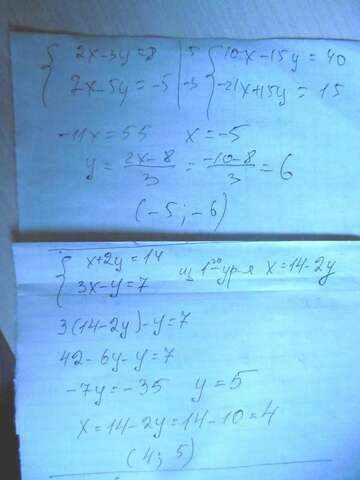 { 2x-3y=8 | 5 { 10x-15y=40
{ 7x-5y=-5 | -3 { -21x+15y=15
-11x=55 x=-5
y = (2x-8)/3 = (-10-8)/3 = 6
(-5; -6)
{ x+2y=14
{ 3x-y=7 из 1го ур-я x=14-2y
3(14-2y)-y=7
42-6y-y=7
-7y=-35 y=5
x=14-2y=14-10=4
(4; 5)